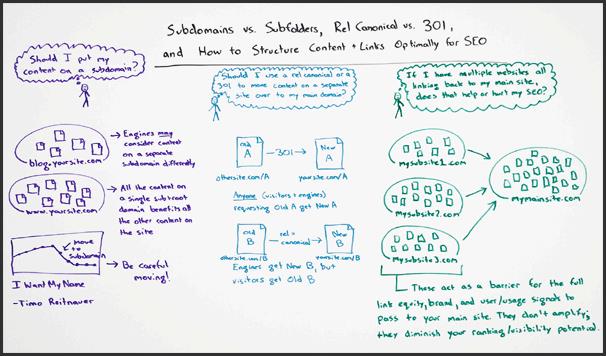 Subdomains vs. Subfolders, Rel Canonical vs. 301,
and How to Structure Content + Links Optimally for SEO
Should I put my
content on a subdomain?
blog.yoursite.com
→ Engines may
consider content
on a separate
subdomain differently
www.yoursite.com
→ All the content on
a single sub+root
domain benefits all
the other content on
the site
move
to
subdomain
→ Be careful
moving!
I Want My Name
-Timo Reitnauer
Should I use a rel canonical or a
301 to move content on a separate
site over to my main domain?
Old
A
301
New
A
othersite.com/A
yoursite.com/A
Anyone (visitors + engines)
requesting Old A get New A
Old
B
rel=
canonical
New
B
othersite.com/B
yoursite.com/B
Engines get New B, but
visitors get Old B
If I have multiple websites all
linking back to my main site,
does that help or hurt my SEO?
mysubsite1.com
mysubsite2.com
mysubsite3.com
mymainsite.com
These act as a barrier for the full
link equity, brand, and user/usage signals to
pass to your main site. They don't amplify;
they diminish your ranking/visibility potential.